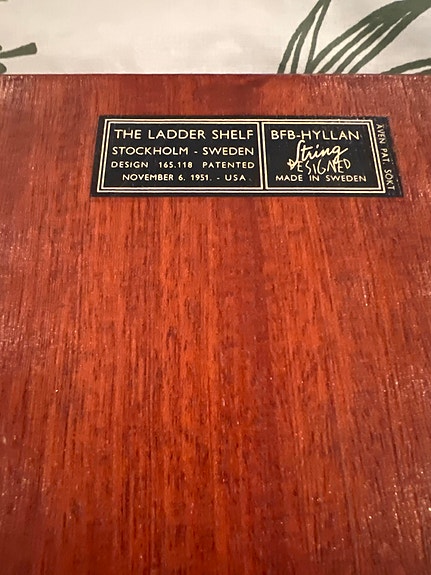 THE LADDER SHELF
STOCKHOLM - SWEDEN
DESIGN 165.118 PATENTED
NOVEMBER 6. 1951. - USA
BFB-HYLLAN
String
DESIGNED
MADE IN SWEDEN
ÄVEN PAT. SÖKT.